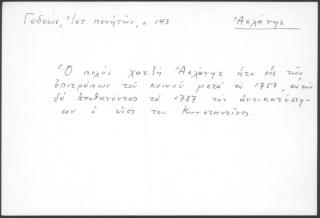 Γεδεών, Πατ. πενήτων, σ 143 Ἀσλάνης
Ὁ πολὺς χατζῆ Ἀσλάνης ἦτο εἷς τῶν
ἐπιτρόπων τοῦ κοινοῦ μετὰ τὸ 1757, αὐτὸν
δὲ ἀποθανόντος τὸ 1787 τὸν ἀντικατέστη-
σεν ὁ υἱός του Κωνσταντῖνος.